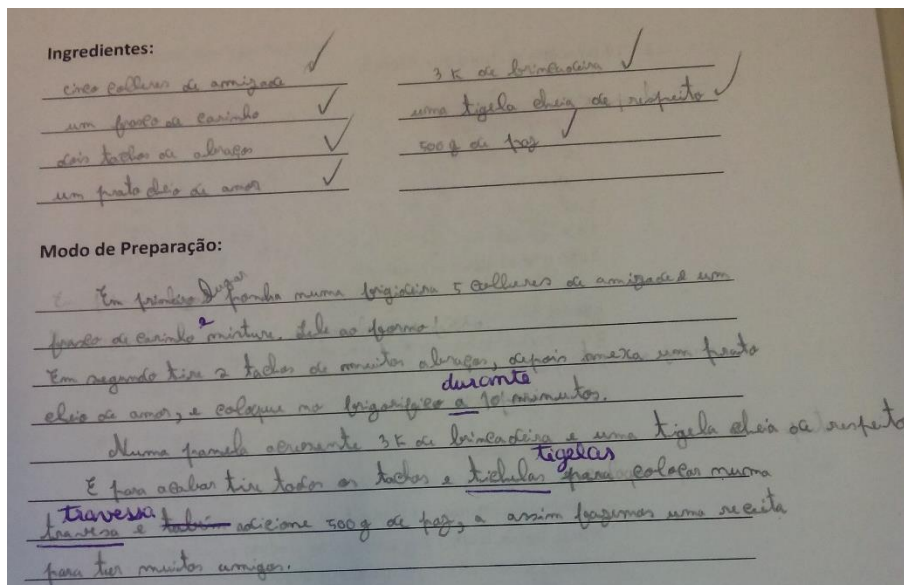 Ingredientes:
cinco colheres de amizade
um frasco de carinho
dois tachos de abraços
um prato cheio de amor
3 K de brincadeira
uma tigela cheia de respeito
500 g de paz
Modo de Preparação:
Em primeiro lugar ponha numa frigideira 5 colheres de amizade e um
frasco de carinho e misture. Lele ao forno!
Em segundo tire 2 tachos de muitos abraços, depois mexa um prato
cheio de amor, e coloque no frigorífico a durante 10 minutos.
Numa panela acrescente 3 K de brincadeira e uma tigela cheia de respeito
E para acabar tire todos os tachos e tichelas tigelas para colocar numa
travesa travessa e adicione 500 g de paz, e assim fazemos uma receita
para ter muitos amigos.